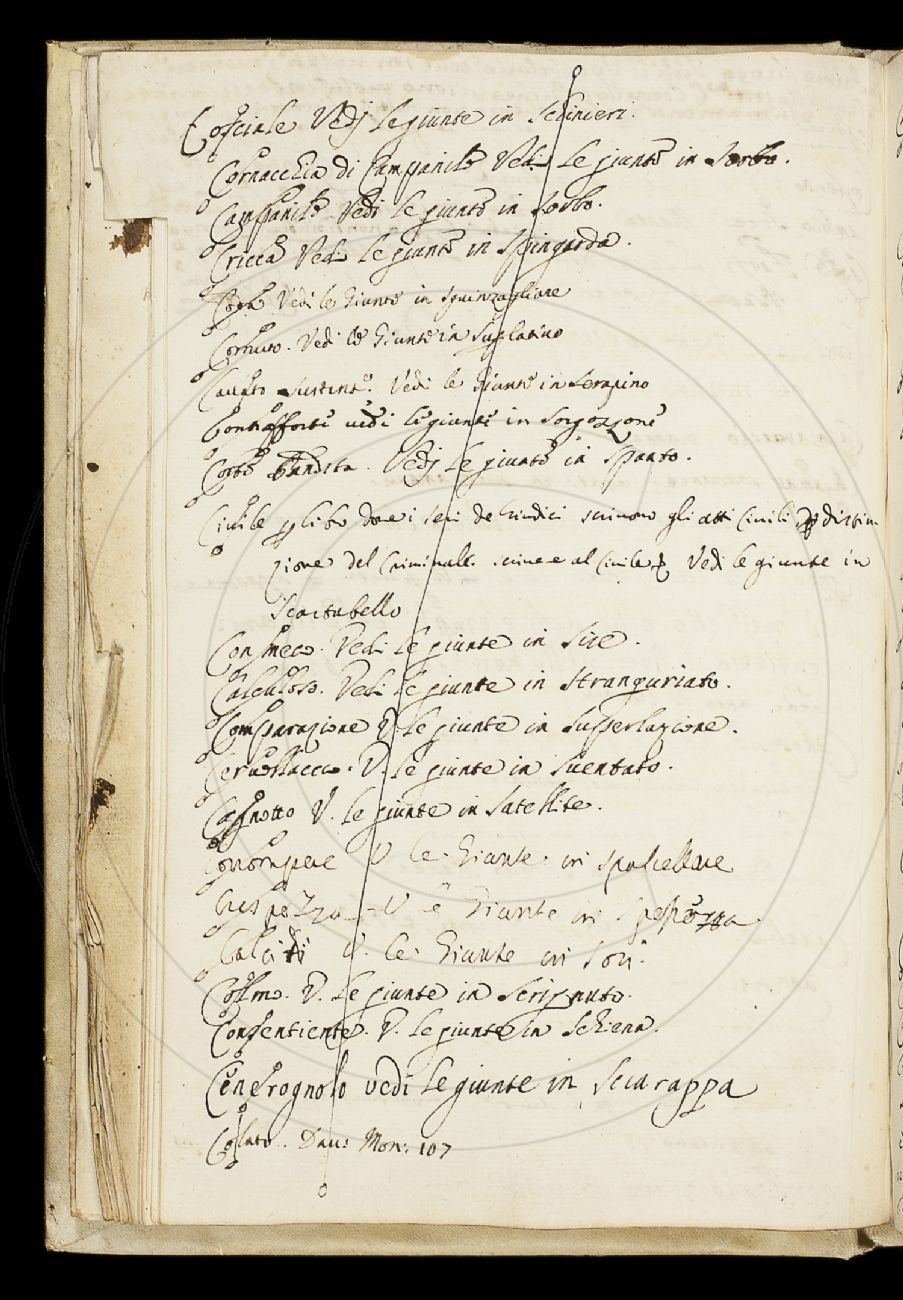 Cosciale Vedj le giunte in Schinieri.
Cornacchia di Campanile Vedi Le giunte in Sorbo.
Campanile Vedi le giunte in Sorbo.
Cricca Vedi Le giunte in Spingarda.
Vedi le Giunte in Sguinzagliare
Cornuto. Vedi le Giunte in Suglativo
Vedi le Giunte in Serapino
Contrafforte vedi le giunte in Sorgozzone
Corte bandita. Vedj Le giunte in Spanto.
Civile libro dove i Giudici scrivono gli atti Civili distin-
zione del Criminale. scrivere al Civile Vedi le giunte in
Scartabello
Vedi le giunte in Sire.
Calculoso. Vedi le giunte in Stranguriato.
Comparazione V. le giunte in Superlazione.
V. le giunte in Sventato.
Cagnotto V. le giunte in Satellite.
Corrompere V le Giunte in spulcellare
Crespezza V le Giunte in Spessezza
V. le Giunte in
V. Le giunte in Scrignuto.
Consentiente. V. Le giunte in Schiena.
Cenerognolo vedi Le giunte in Sciarappa
Colato. Dav: Mon: 107